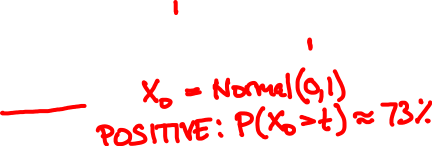 X₀ = Normal(0,1)
POSITIVE: P(X₀>t) ≈ 73%